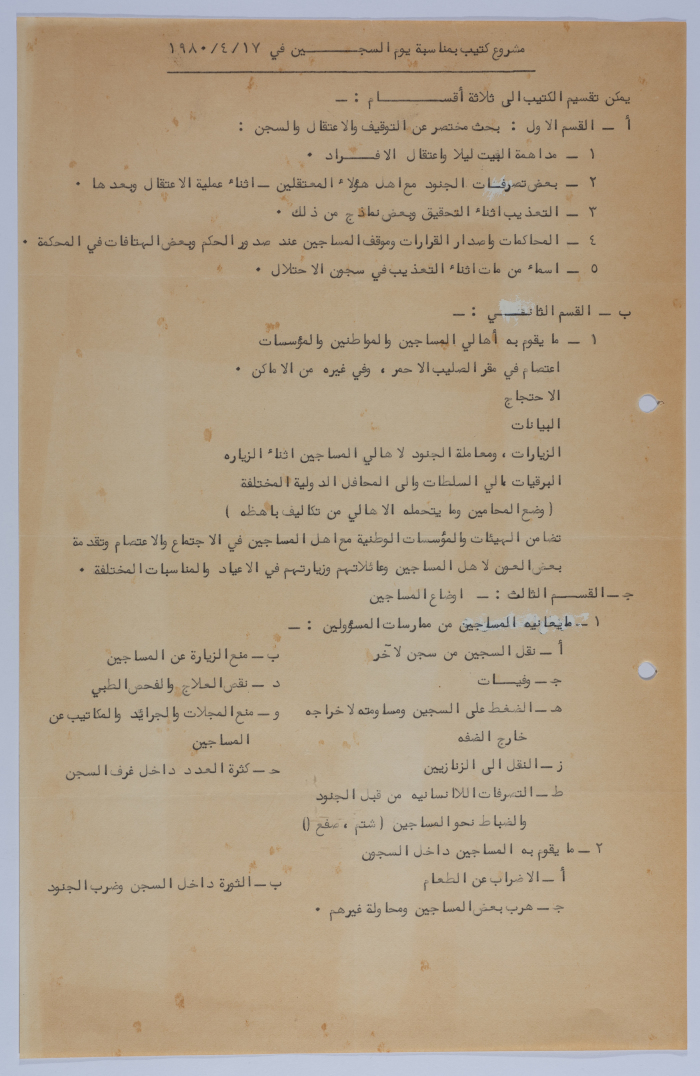 مشروع كتيب بمناسبة يوم السجـــــــين في ١٩٨٠/٤/١٧
يمكن تقسيم الكتيب الى ثلاثة أقســـــام : ـ
أ ـ القسم الاول : بحث مختصر عن التوقيف والاعتقال والسجن :
١ ـ مداهمة البيت ليلا واعتقال الافـــراد •
٢ ـ بعض تصرفات الجنود مع اهل هؤلاء المعتقلين ـ اثناء عملية الاعتقال وبعدها •
٣ ـ التعذيب اثناء التحقيق وبعض نماذج من ذلك •
٤ ـ المحاكمات واصدار القرارات وموقف المساجين عند صدور الحكم وبعض الهتافات في المحكمة •
٥ ـ اسماء من مات اثناء التعذيب في سجون الاحتلال •
ب ـ القسم الثانـــي : ـ
١ ـ ما يقوم به أهالي المساجين والمواطنين والمؤسسات
اعتصام في مقر الصليب الاحمر ، وفي غيره من الاماكن •
الاحتجاج
البيانات
الزيارات ، ومعاملة الجنود لاهالي المساجين اثناء الزياره
البرقيات الي السلطات والى المحافل الدولية المختلفة
( وضع المحامين وما يتحمله الاهالي من تكاليف باهظه )
تضامن الهيئات والمؤسسات الوطنية مع اهل المساجين في الاجتماع والاعتصام وتقدمة
بعض العون لاهل المساجين وعائلاتهم وزيارتهم في الاعياد والمناسبات المختلفة •
جـ ـ القســم الثالث : ـ اوضاع المساجين
١ ـ مايعانيه المساجين من ممارسات المسؤولين : ـ
أ ـ نقل السجين من سجن لآخر
ب ـ منع الزيارة عن المساجين
جـ ـ وفيـــات
د ـ نقص العلاج والفحص الطبي
هـ ـ الضغط على السجين ومساومته لاخراجه
خارج الضفه
و ـ منع المجلات والجرائد والمكاتيب عن
المساجين
ز ـ النقل الى الزنازيين
حـ ـ كثرة العدد داخل غرف السجن
ط ـ التصرفات اللاانسانيه من قبل الجنود
والضباط نحو المساجين ( شتم ، صفع ))
٢ ـ ما يقوم به المساجين داخل السجون
أ ـ الاضراب عن الطعام
ب ـ الثورة داخل السجن وضرب الجنود
جـ ـ هرب بعض المساجين ومحاولة غيرهم •